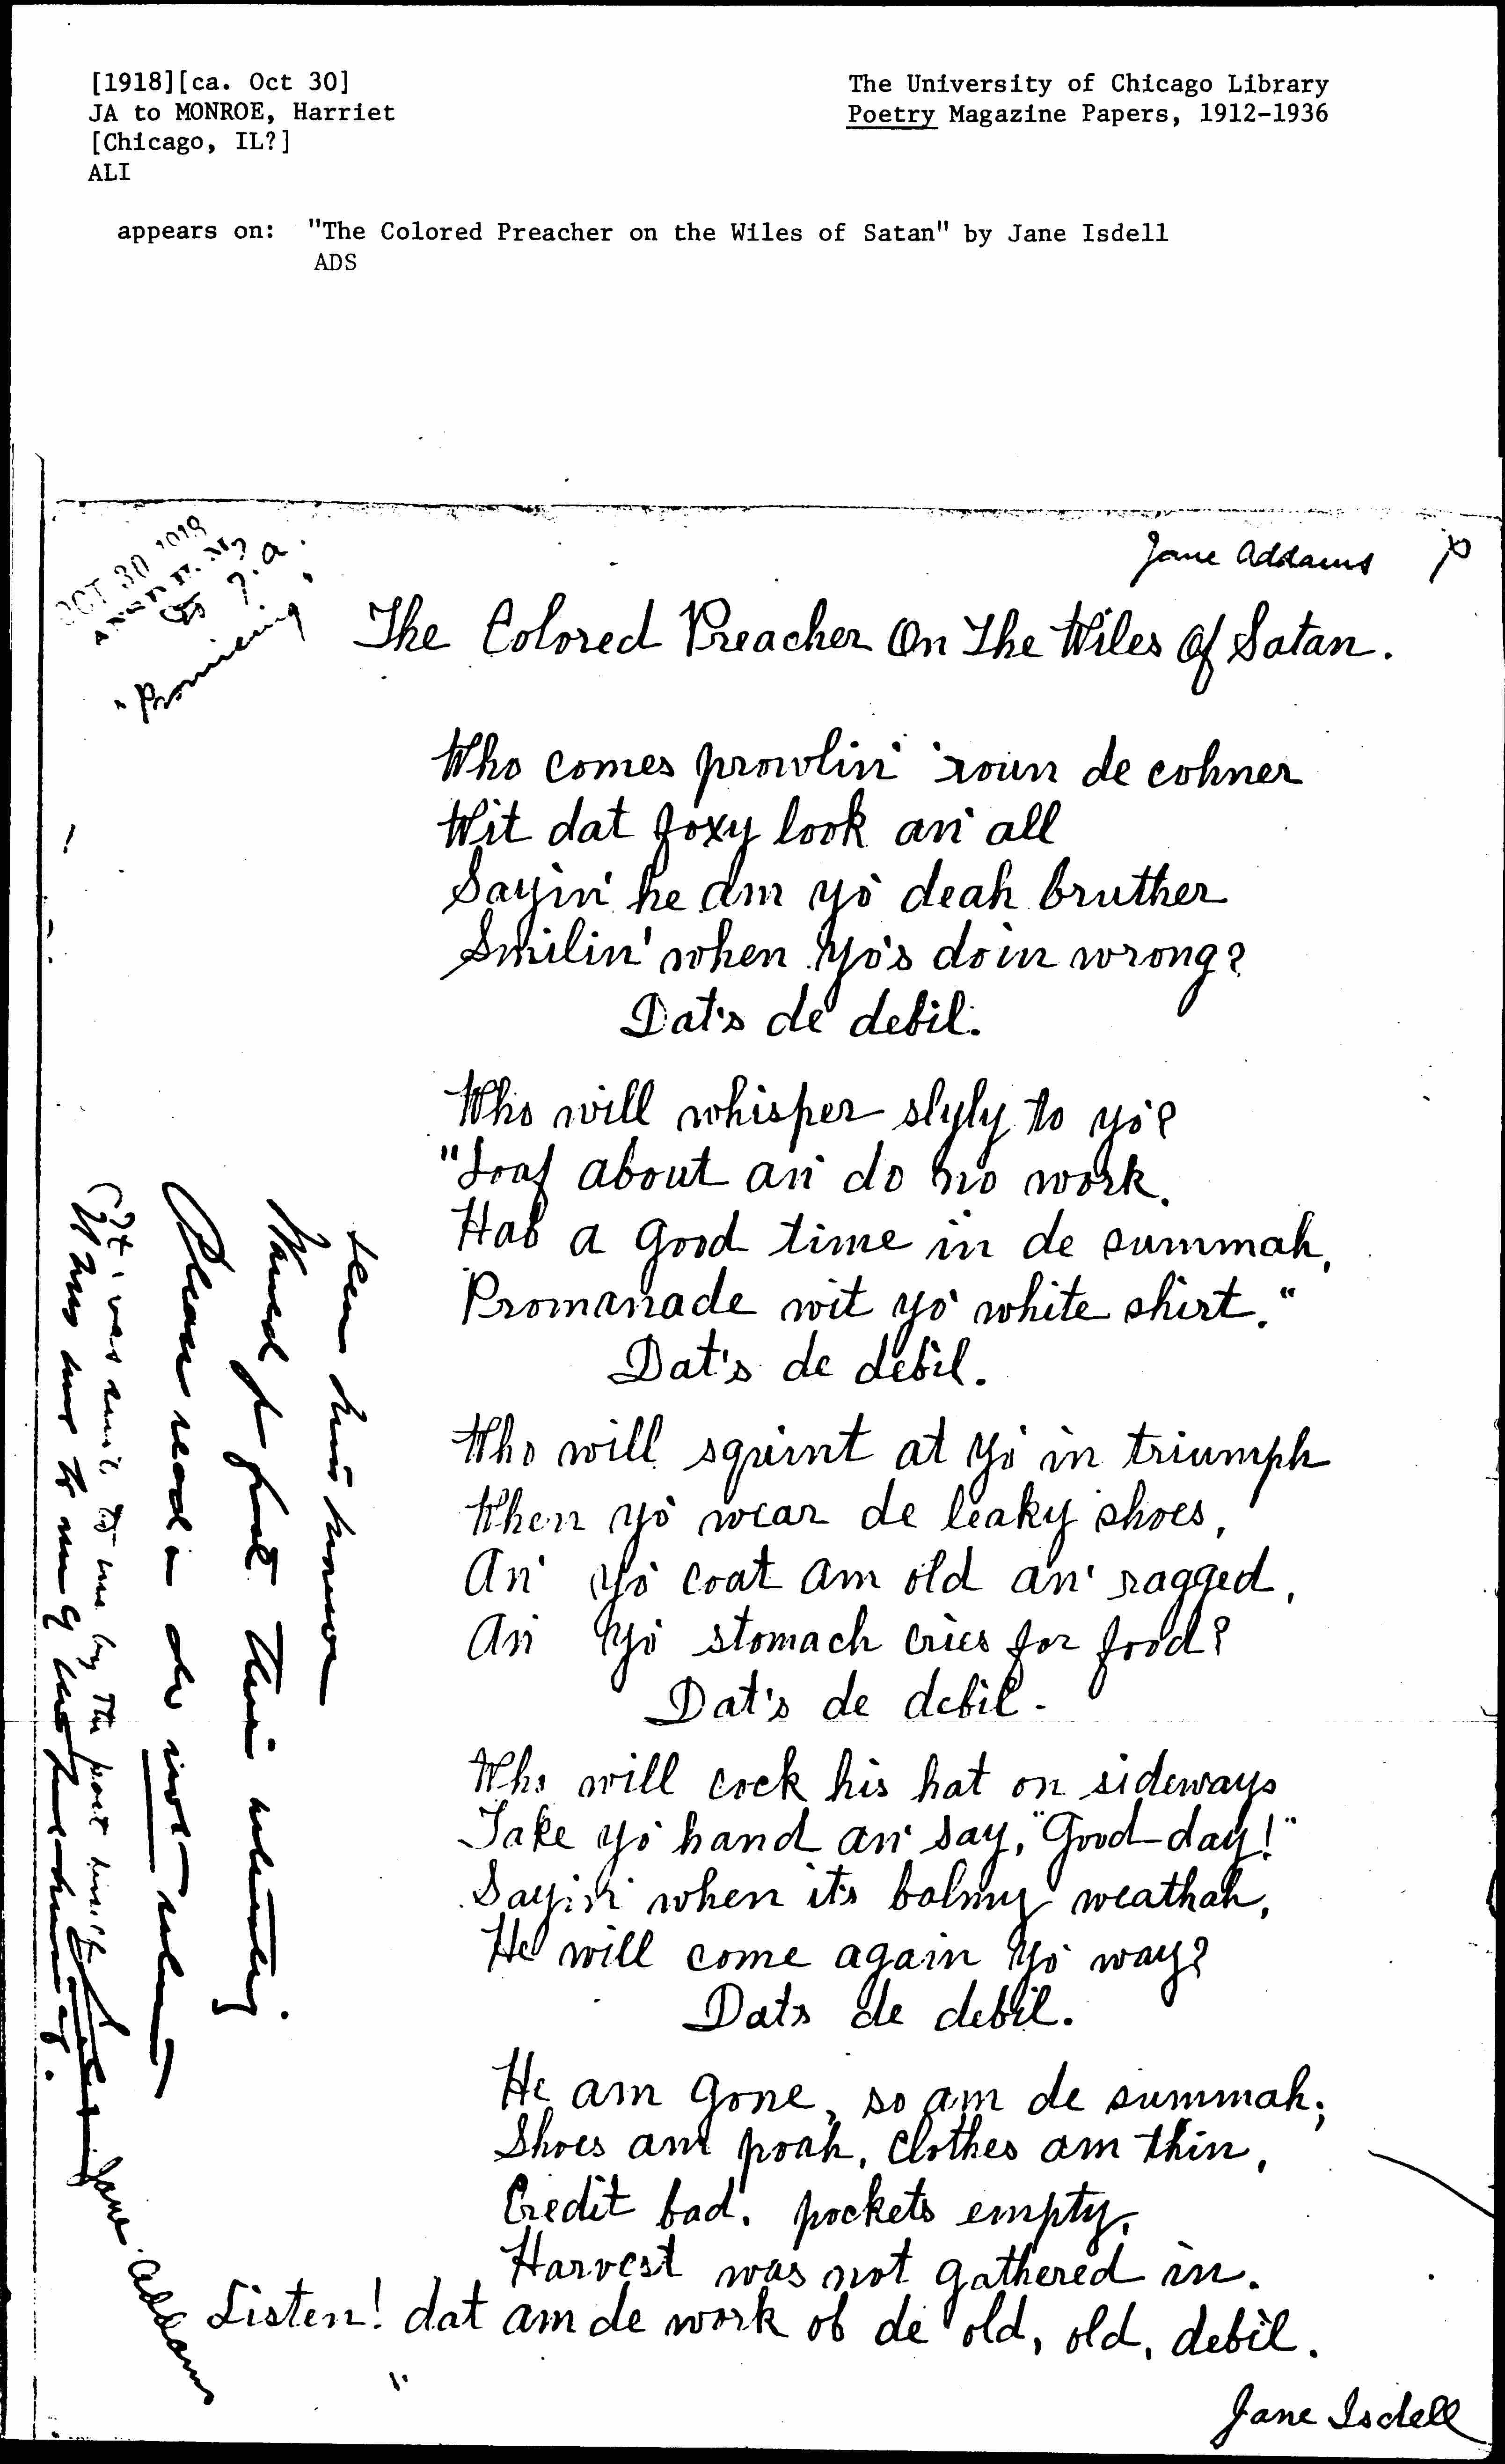 [1918][ca. Oct 30]
JA to MONROE, Harriet
[Chicago, IL?]
ALI
The University of Chicago Library
Poetry Magazine Papers, 1912-1936
appears on: "The Colored Preacher on the Wiles of Satan" by Jane Isdell
ADS
OCT 30 1918
Jane Addams
The Colored Preacher On The Wiles Of Satan.
Who comes prowlin' 'roun de cohner
Wit dat foxy look an' all
Sayin' he am yo' deah bruther
Smilin' when yo's doin wrong?
Dat's de debil.
Who will whisper slyly to yo'?
"Loaf about an' do no work.
Hab a good time in de summah,
Promanade wit yo' white shirt."
Dat's de debil.
Who will squint at yo' in triumph
When yo' wear de leaky shoes,
An' yo' coat am old an' ragged,
An' yo' stomach cries for food?
Dat's de debil.
Who will cock his hat on sideways
Take yo' hand an' say, "Good-day!"
Sayin' when it's balmy weathah,
He will come again yo' way?
Dats de debil.
He am gone, so am de summah;
Shoes am poah, clothes am thin,
Credit bad, pockets empty,
Harvest was not gathered in.
Listen! dat am de work ob de old, old, debil.
Jane Isdell
Please read
to me by the poet
Jane Addams